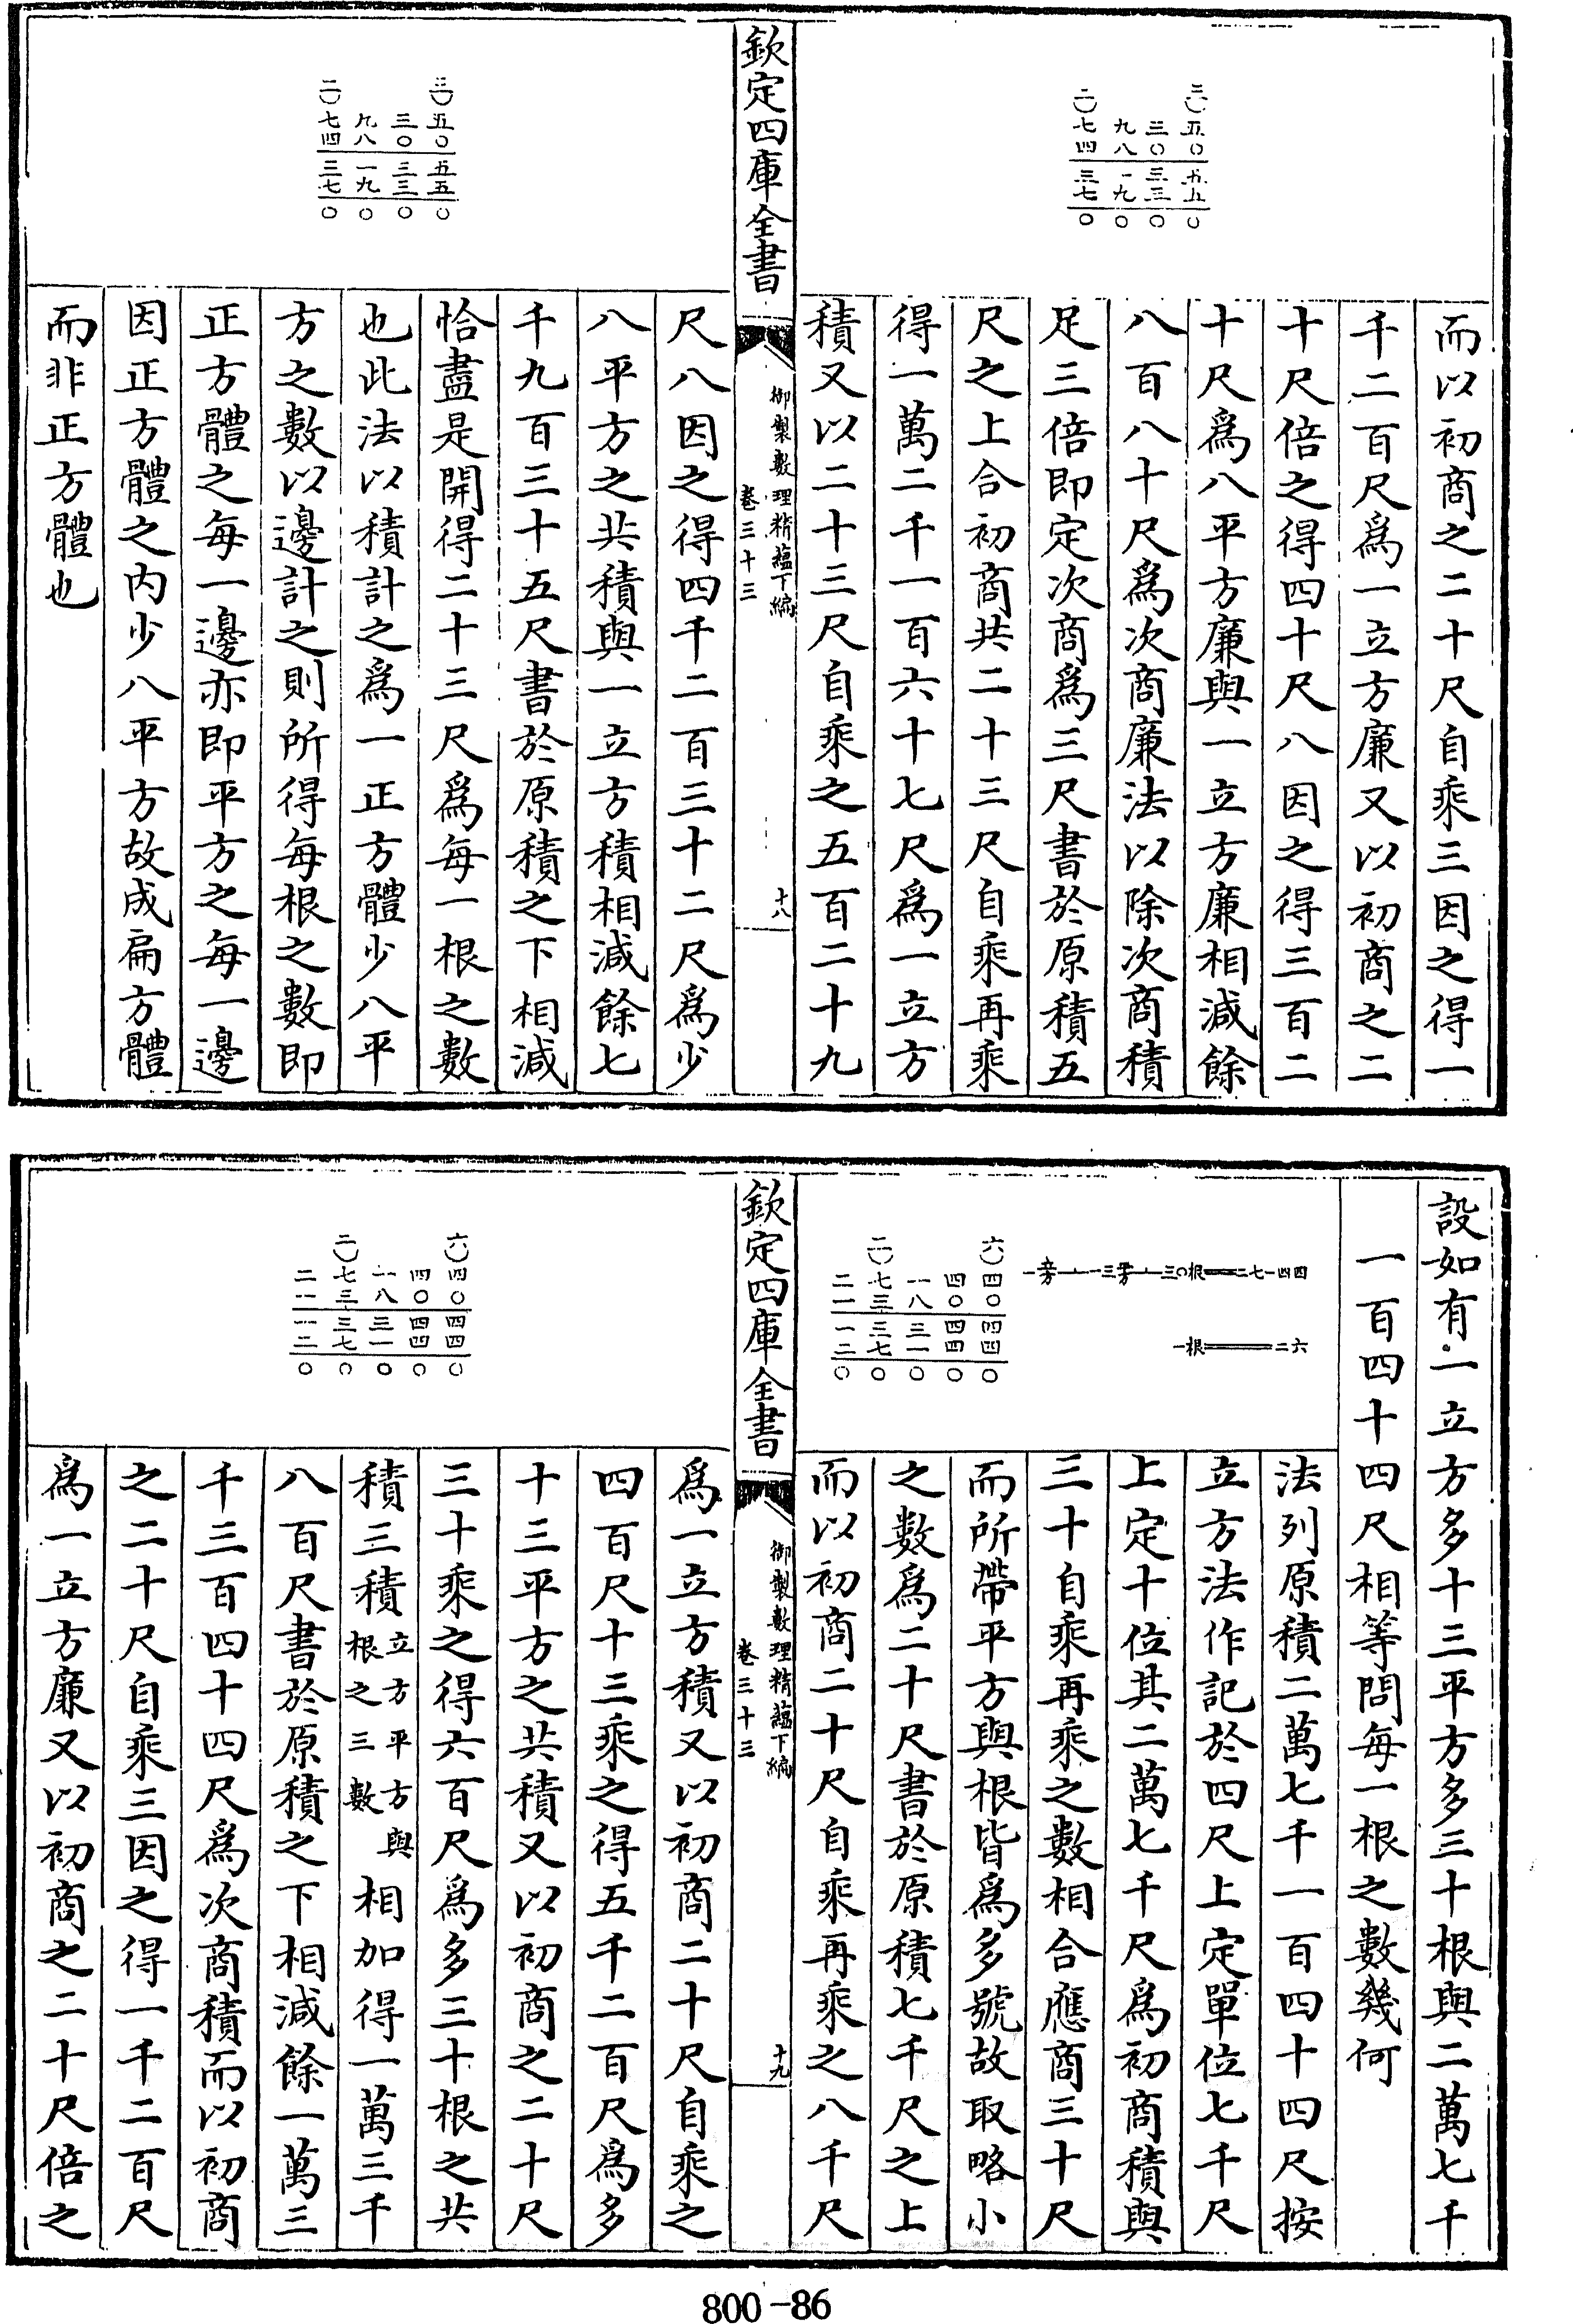 三)五〇五五〇
三〇三三〇
九八一九〇
二)七四三七〇
而以初商之二十尺自乘三因之得一
千二百尺爲一立方廉又以初商之二
十尺倍之得四十尺八因之得三百二
十尺爲八平方廉與一立方廉相減餘
八百八十尺爲次商廉法以除次商積
足三倍即定次商爲三尺書於原積五
尺之上合初商共二十三尺自乘再乘
得一萬二千一百六十七尺爲一立方
積又以二十三尺自乘之五百二十九
欽定四庫全書
御製數理精蘊下編
卷三十三
十八
三)五〇五五〇
三〇三三〇
九八一九〇
二)七四三七〇
尺八因之得四千二百三十二尺爲少
八平方之共積與一立方積相減餘七
千九百三十五尺書於原積之下相減
恰盡是開得二十三尺爲每一根之數
也此法以積計之爲一正方體少八平
方之數以邊計之則所得每根之數即
正方體之每一邊亦即平方之每一邊
因正方體之内少八平方故成扁方體
而非正方體也
設如有一立方多十三平方多三十根與二萬七千
一百四十四尺相等問每一根之數幾何
一立方⊥一三平方⊥三〇根＝二七一四四
一根＝二六
六)四〇四四〇
四〇四四〇
一八三一〇
二)七三三七〇
二一一二〇
法列原積二萬七千一百四十四尺按
立方法作記於四尺上定單位七千尺
上定十位其二萬七千尺爲初商積與
三十自乘再乘之數相合應商三十尺
而所帶平方與根皆爲多號故取略小
之數爲二十尺書於原積七千尺之上
而以初商二十尺自乘再乘之八千尺
欽定四庫全書
御製數理精蘊下編
卷三十三
十九
六)四〇四四〇
四〇四四〇
一八三一〇
二)七三三七〇
二一一二〇
爲一立方積又以初商二十尺自乘之
四百尺十三乘之得五千二百尺爲多
十三平方之共積又以初商之二十尺
三十乘之得六百尺爲多三十根之共
積三積立方平方與根之三數相加得一萬三千
八百尺書於原積之下相減餘一萬三
千三百四十四尺爲次商積而以初商
之二十尺自乘三因之得一千二百尺
爲一立方廉又以初商之二十尺倍之
800-86